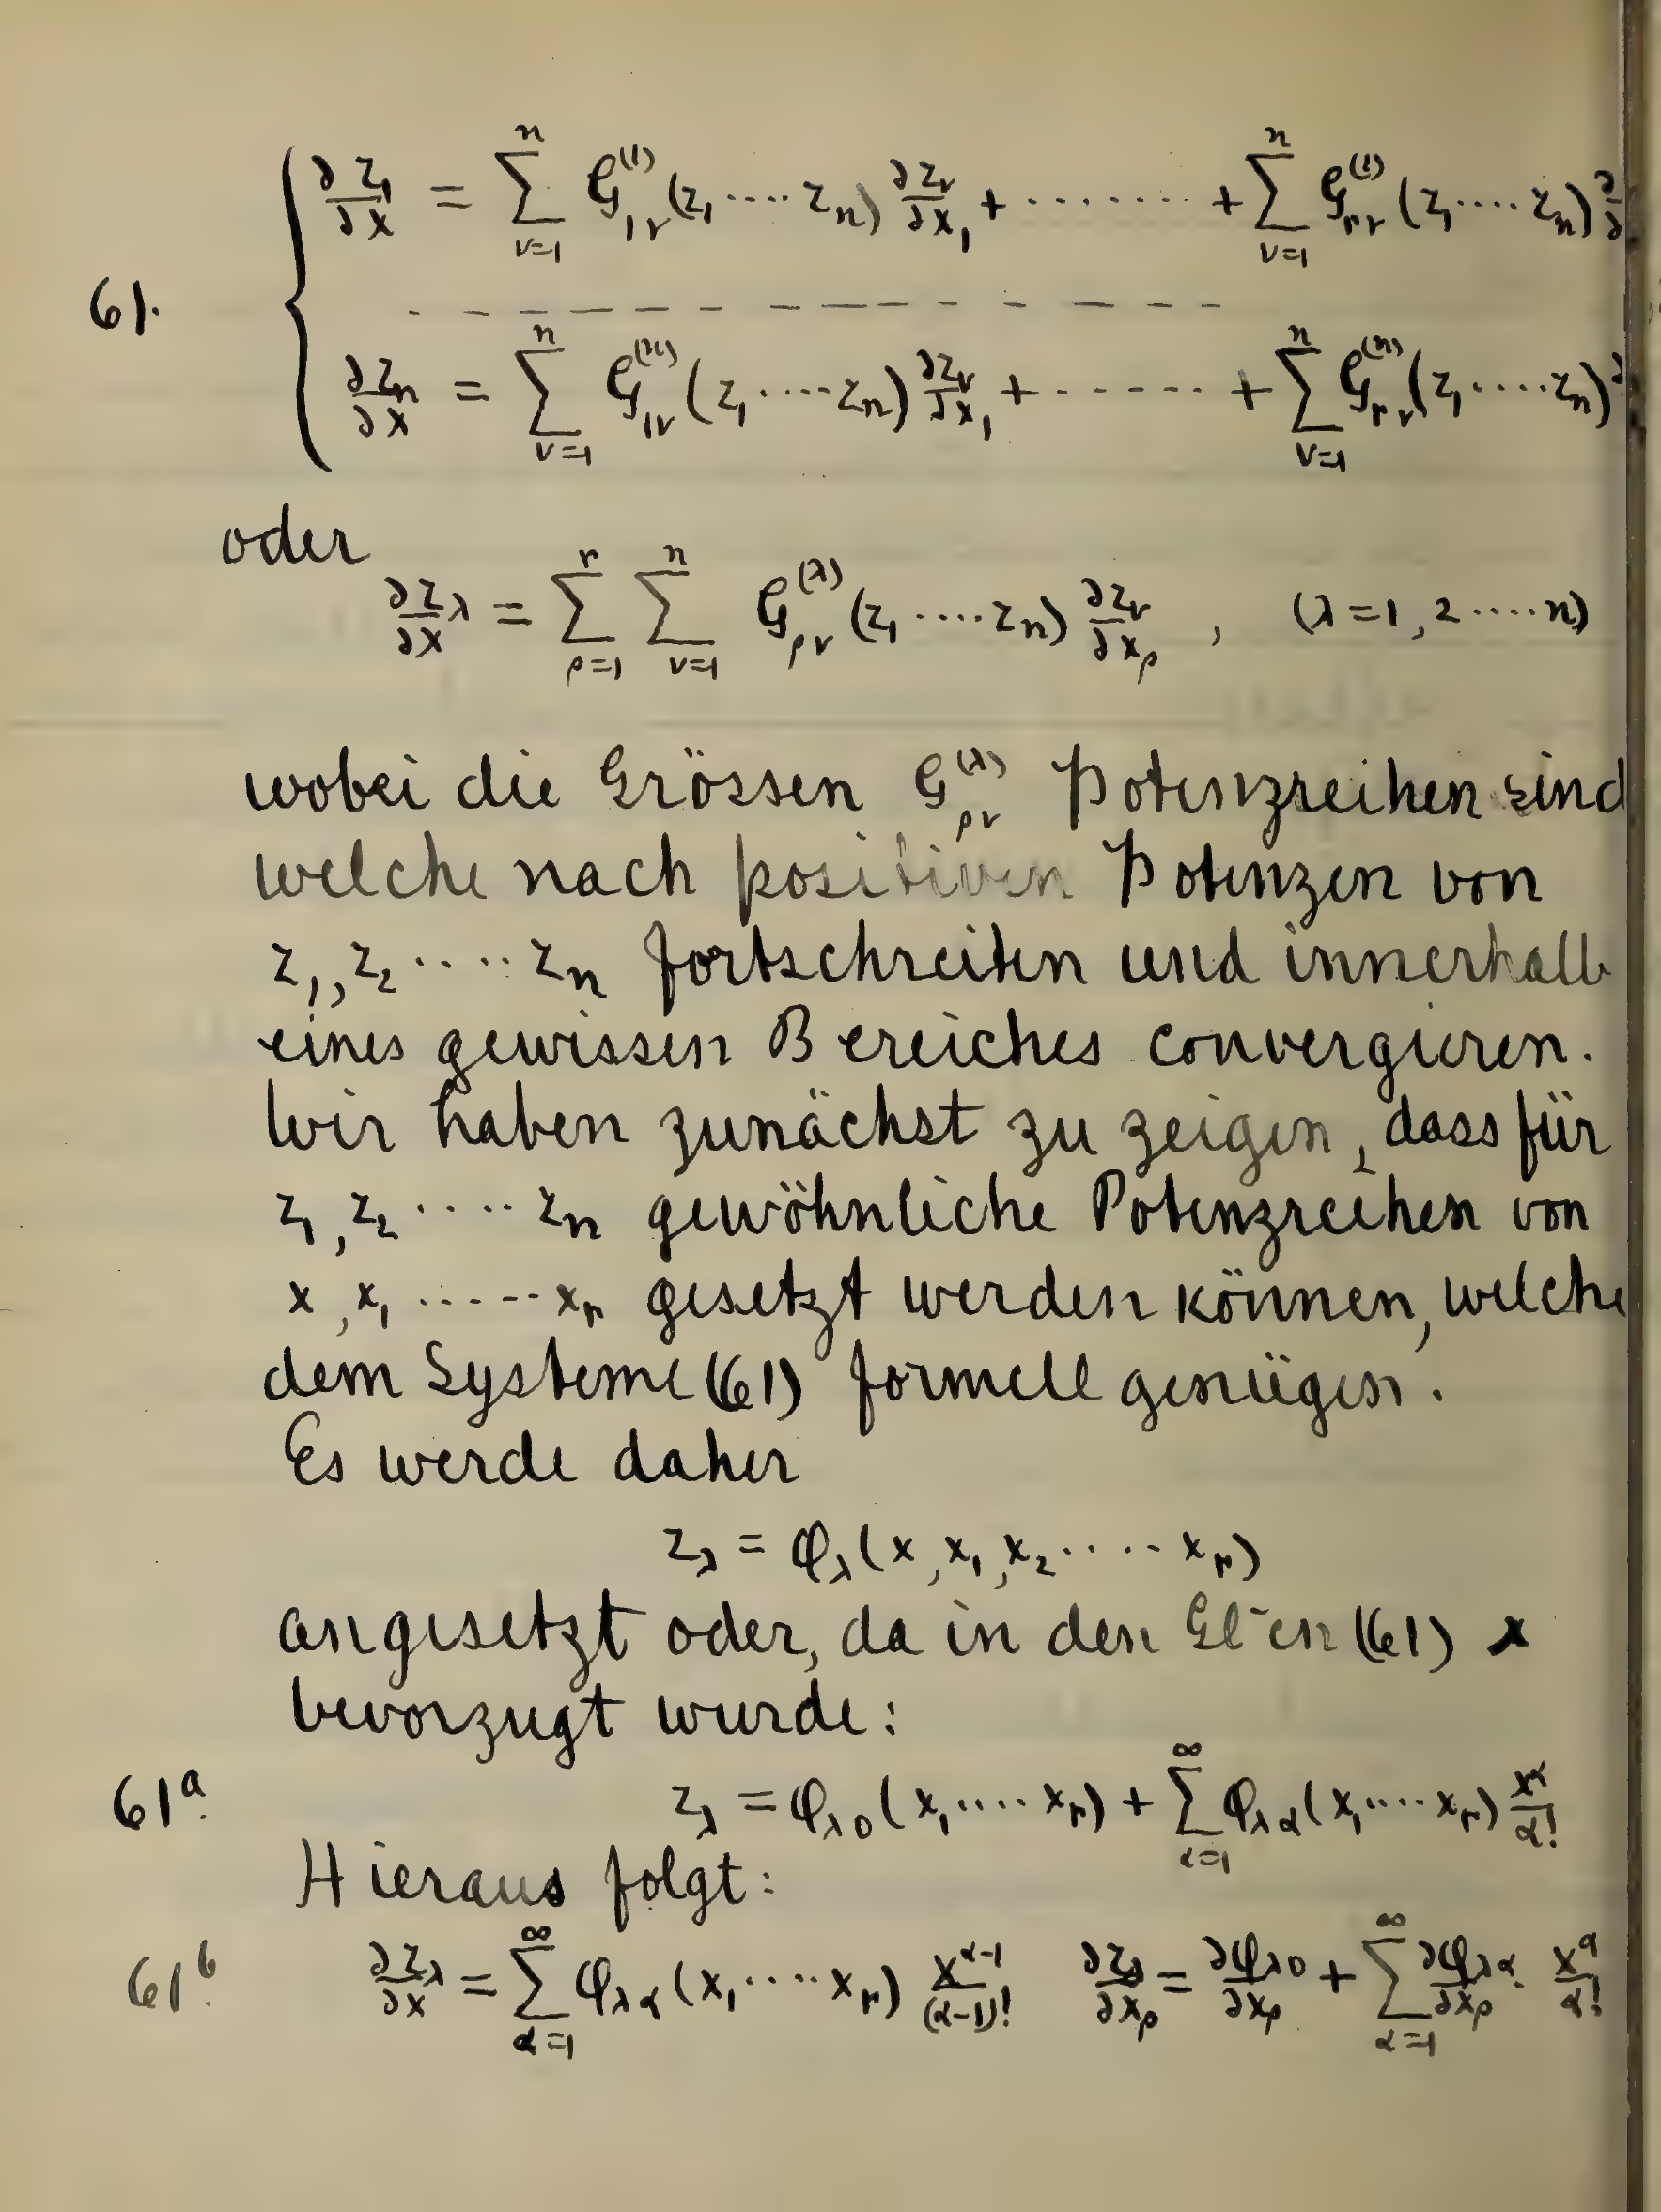 61. { ∂z₁/∂x = ∑_{ν=1}^{n} G_{1ν}^{(1)}(z₁····zₙ) ∂z_ν/∂x₁ + ········ + ∑_{ν=1}^{n} G_{rν}^{(1)}(z₁····zₙ) ∂/∂
– – – – – – – – – – – –
∂zₙ/∂x = ∑_{ν=1}^{n} G_{1ν}^{(n)}(z₁····zₙ) ∂z_ν/∂x₁ + ······ + ∑_{ν=1}^{n} G_{rν}^{(n)}(z₁····zₙ) ∂
oder
∂z_λ/∂x = ∑_{ρ=1}^{r} ∑_{ν=1}^{n} G_{ρν}^{(λ)}(z₁····zₙ) ∂z_ν/∂x_ρ , (λ=1,2····n)
wobei die Grössen G_{ρν}^{(λ)} Potenzreihen sind
welche nach positiven Potenzen von
z₁,z₂····zₙ fortschreiten und innerhalb
eines gewissen Bereiches convergieren.
Wir haben zunächst zu zeigen, dass für
z₁,z₂····zₙ gewöhnliche Potenzreihen von
x,x₁······x_r gesetzt werden können, welche
dem Systeme (61) formell genügen.
Es werde daher
z_λ = φ_λ(x,x₁,x₂·····x_r)
angesetzt oder, da in den Gl–en (61) x
bevorzugt wurde:
61ᵃ. z_λ = φ_{λ0}(x₁····x_r) + ∑_{α=1}^{∞} φ_{λα}(x₁····x_r) x^α/α!
Hieraus folgt:
61ᵇ. ∂z_λ/∂x = ∑_{α=1}^{∞} φ_{λα}(x₁····x_r) x^{α-1}/(α-1)! ∂z_λ/∂x_ρ = ∂φ_{λ0}/∂x_ρ + ∑_{α=1}^{∞} ∂φ_{λα}/∂x_ρ · x^α/α!